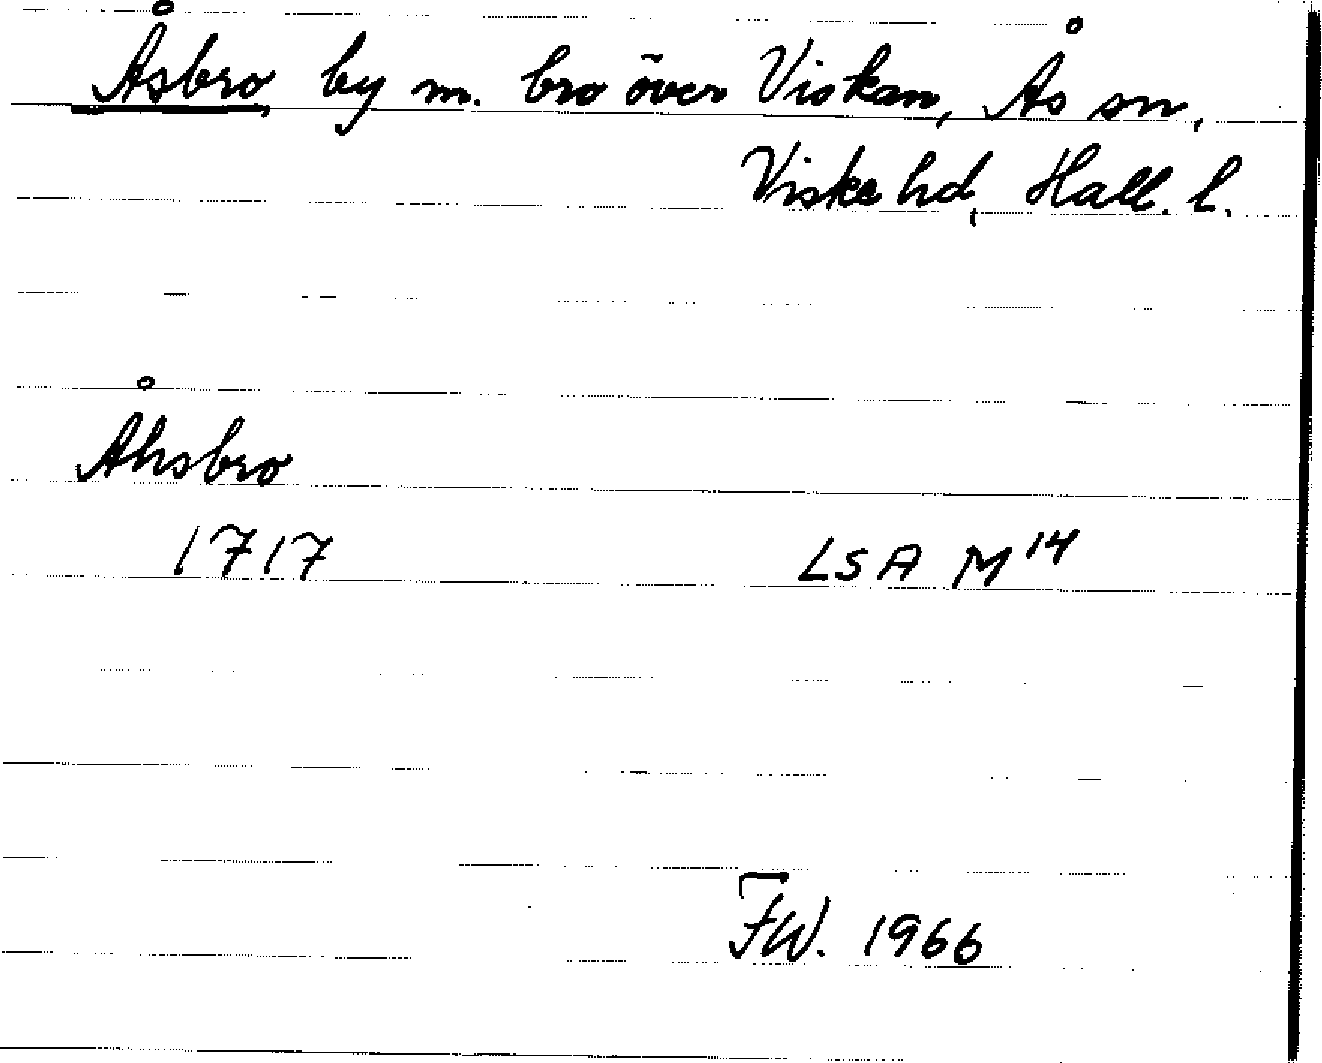 Åsbro, by m. bro över Viskan, Ås sn,
Viske hd, Hall. l.
Åhsbro
1717 LSA M 14
FW. 1966